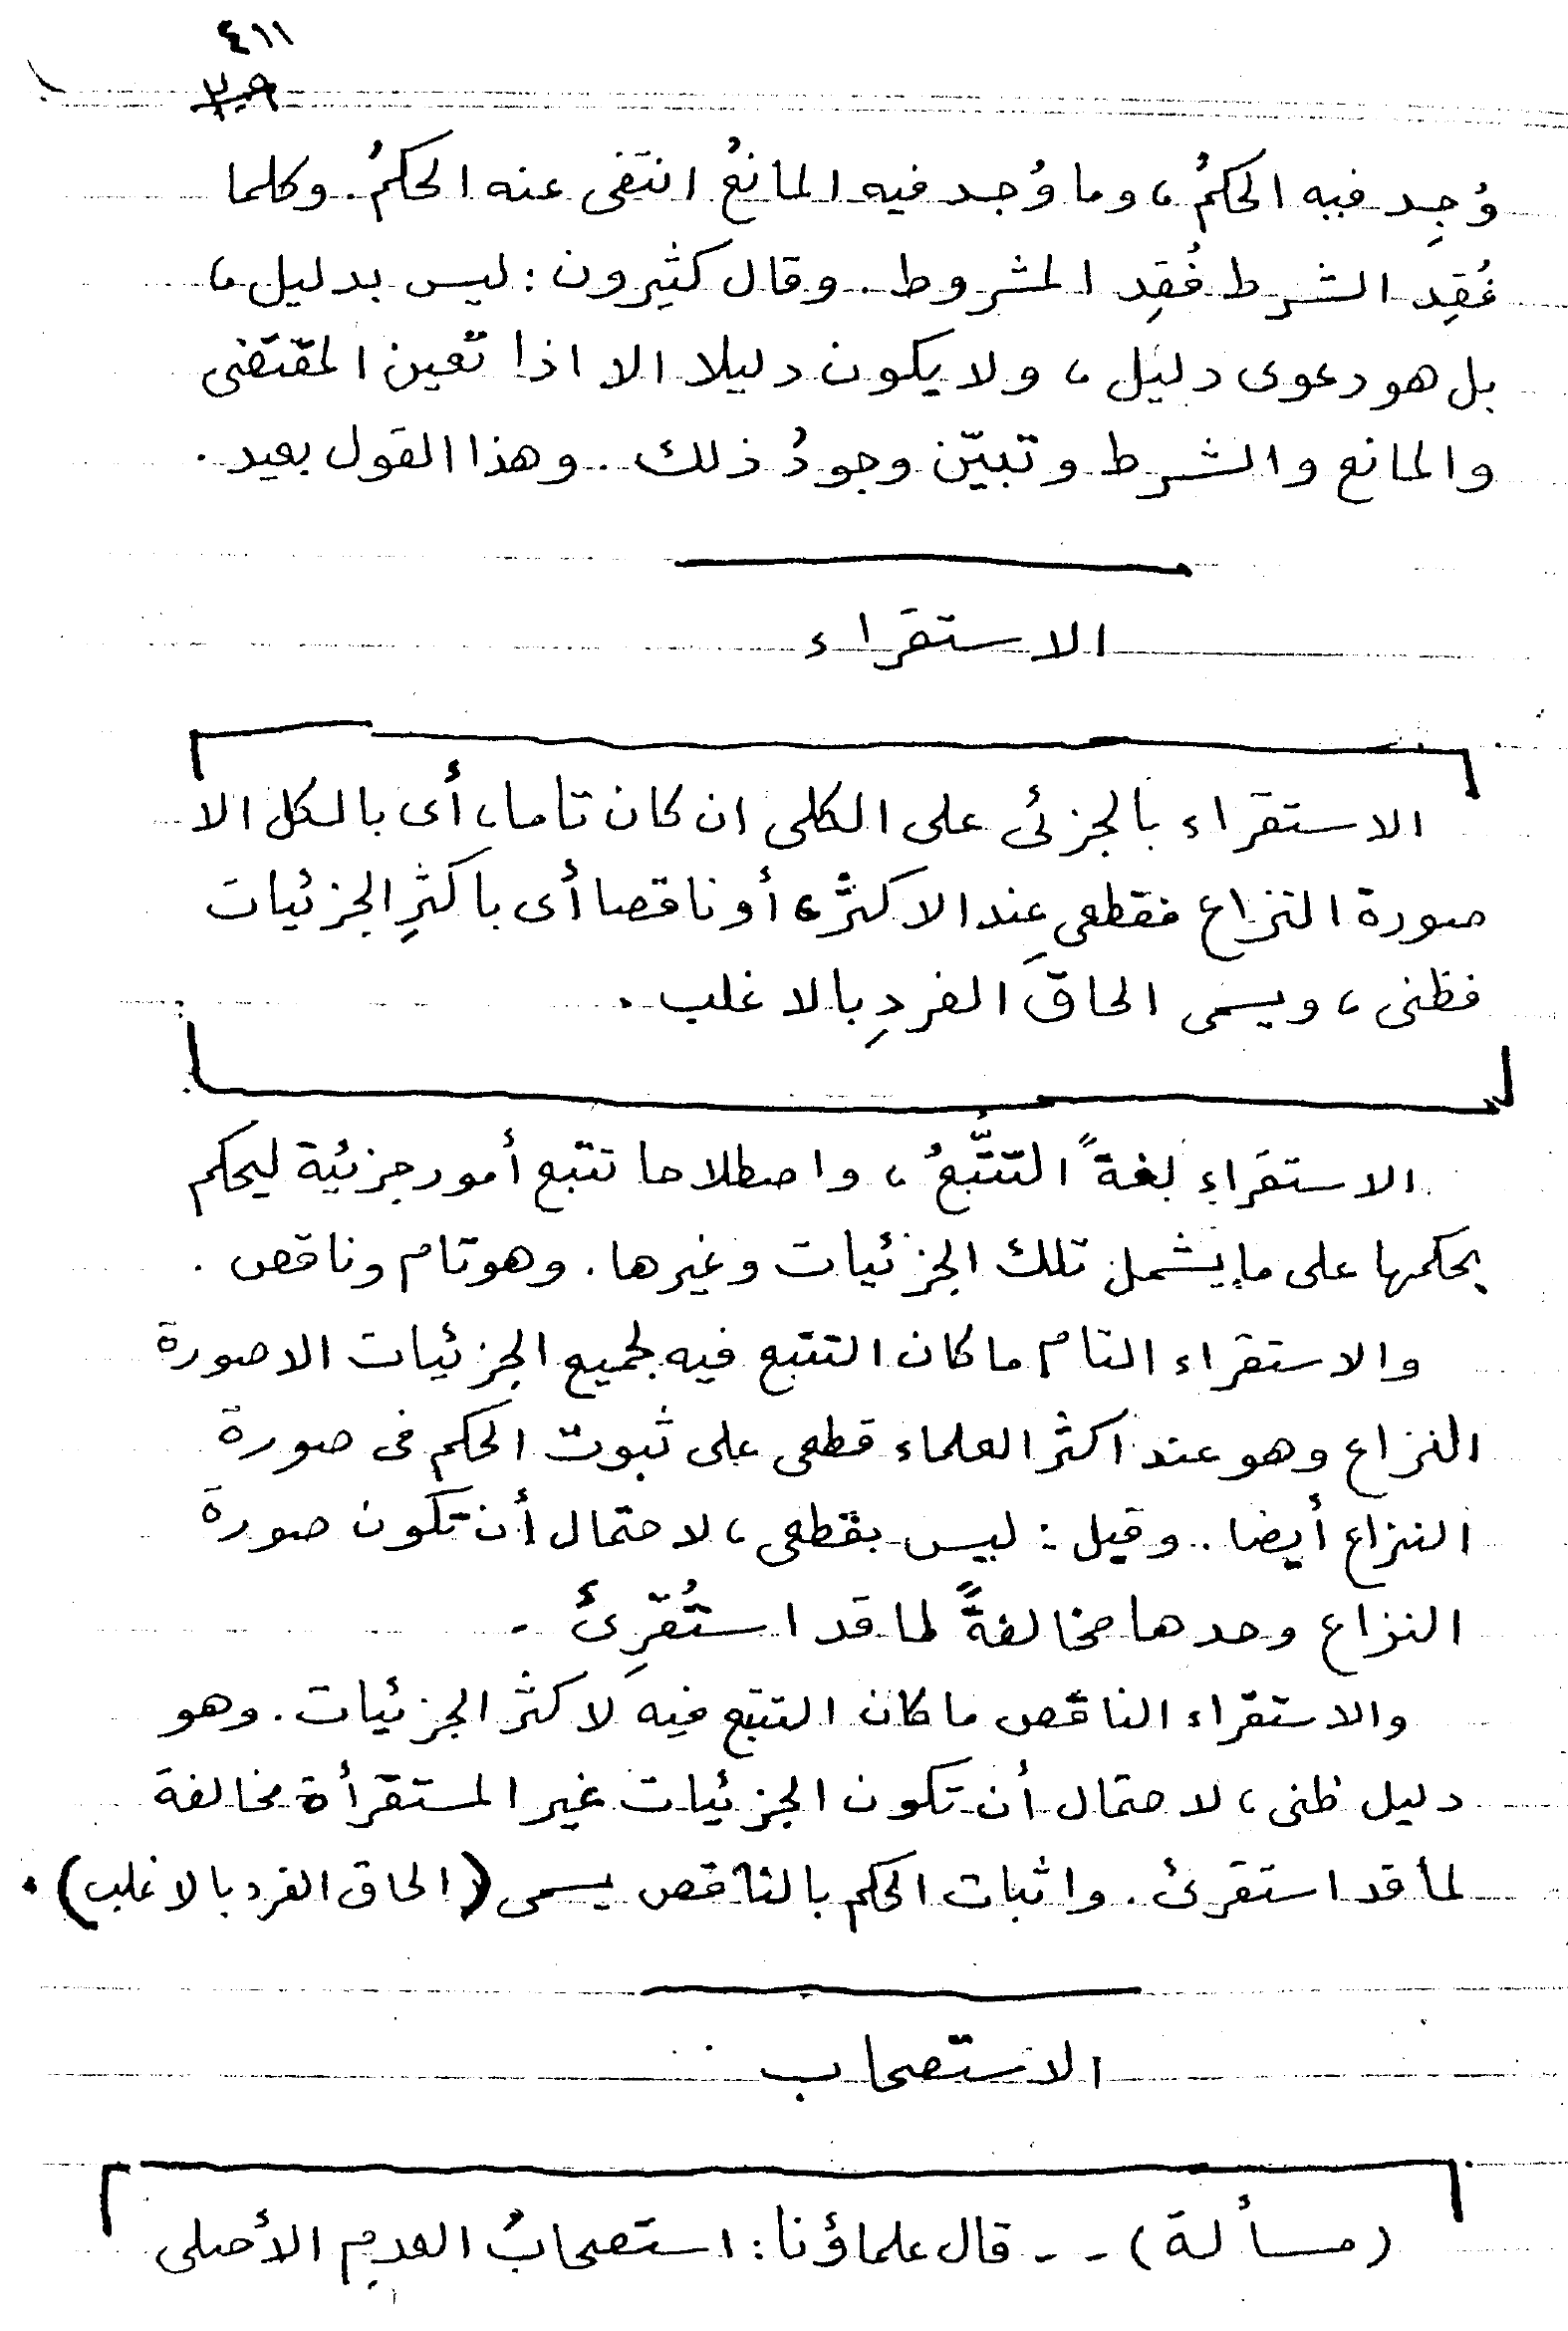 ٤١١
وُجِد فيه الحكمُ، وما وُجد فيه المانعُ انتفى عنه الحكمُ. وكلما
فُقِد الشرط فُقِد المشروط. وقال كثيرون: ليس بدليل،
بل هو دعوى دليل، ولا يكون دليلا الا اذا تعين المقتضى
والمانع والشرط وتبيّن وجودُ ذلك. وهذا القول بعيد.
الاستقراء
الاستقراء بالجزئى على الكلى ان كان تاما، أى بالكل الا
صورة النزاع فقطعى عند الاكثر، أو ناقصا أى باكثرِ الجزئيات
فظنى، ويسمى الحاقَ الفردِ بالاغلب.
الاستقراء لغةً التتبُّعُ، واصطلاحا تتبع أمور جزئية ليحكم
بحكمها على ما يشمل تلك الجزئيات وغيرها. وهو تام وناقص.
والاستقراء التام ما كان التتبع فيه لجميع الجزئيات الا صورة
النزاع وهو عند اكثر العلماء قطعى على ثبوت الحكم فى صورة
النزاع أيضا. وقيل: ليس بقطعى، لاحتمال أن تكون صورة
النزاع وحدها مخالفةً لما قد استُقرِئَ.
والاستقراء الناقص ما كان التتبع فيه لاكثر الجزئيات. وهو
دليل ظنى، لاحتمال أن تكون الجزئيات غير المستقرأة مخالفة
لما قد استقرئ. واثبات الحكم بالناقص يسمى (الحاق الفرد بالاغلب).
الاستصحاب
(مسألة) -- قال علماؤنا: استصحابُ العدمِ الأصلى